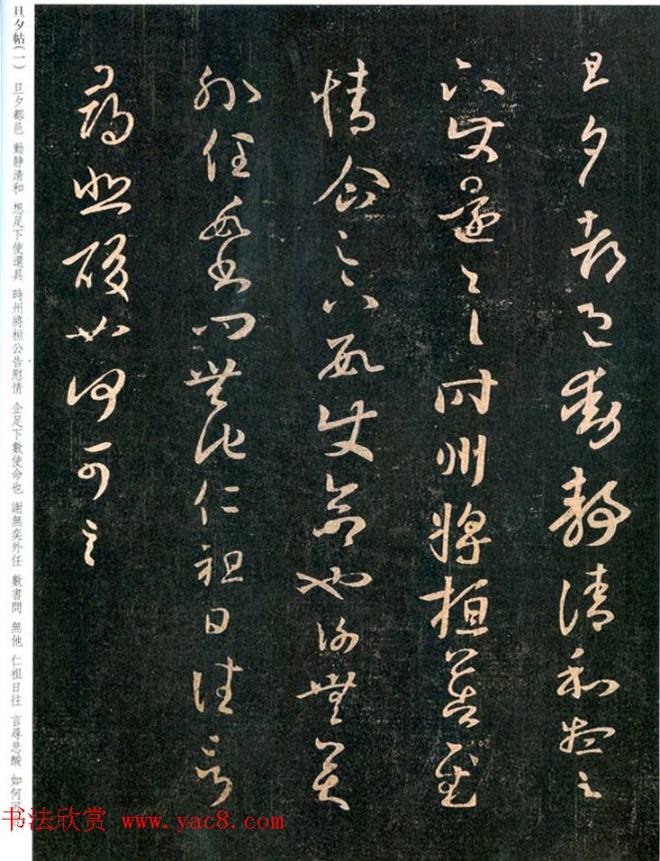 旦夕都邑動靜清和想足
下使還具時州將桓公告慰
情企足下數使命也謝無奕
外任數書問無他仁祖日往言
尋悲酸如何可言
旦夕帖(一) 旦夕都邑 動靜清和 想足下使還具 時州將桓公告慰情 企足下數使命也 謝無奕外任 數書問 無他 仁祖日往 言尋悲酸 如何
书法欣赏 www.yac8.com